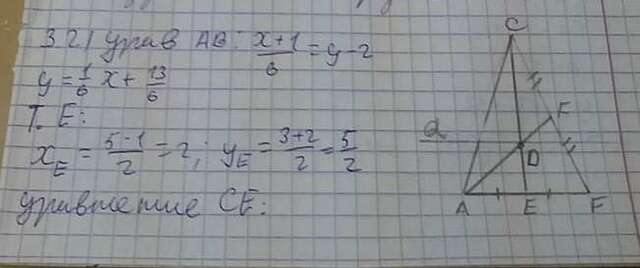 3.2) урав AB: (x+1)/6 = y-2
y = 1/6 x + 13/6
Т. E:
x_E = (5-1)/2 = 2; y_E = (3+2)/2 = 5/2
уравнение CE:
C
F
d
D
A E F